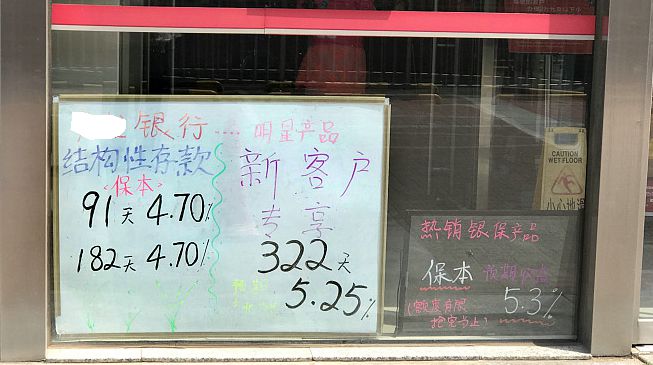 银行....
明星产品
结构性存款
<保本>
91天 4.70%
182天 4.70%
新客户
专享
322天
预期
5.25%
热销银保产品
保本 预期收益
5.3%
(额度有限
抢完为止)
CAUTION
WET FLOOR
小心地滑